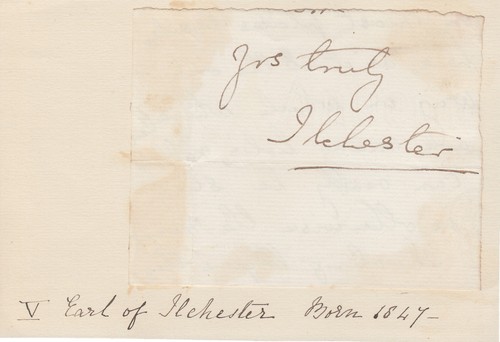 Yrs truly
Ilchester
V Earl of Ilchester Born 1847-